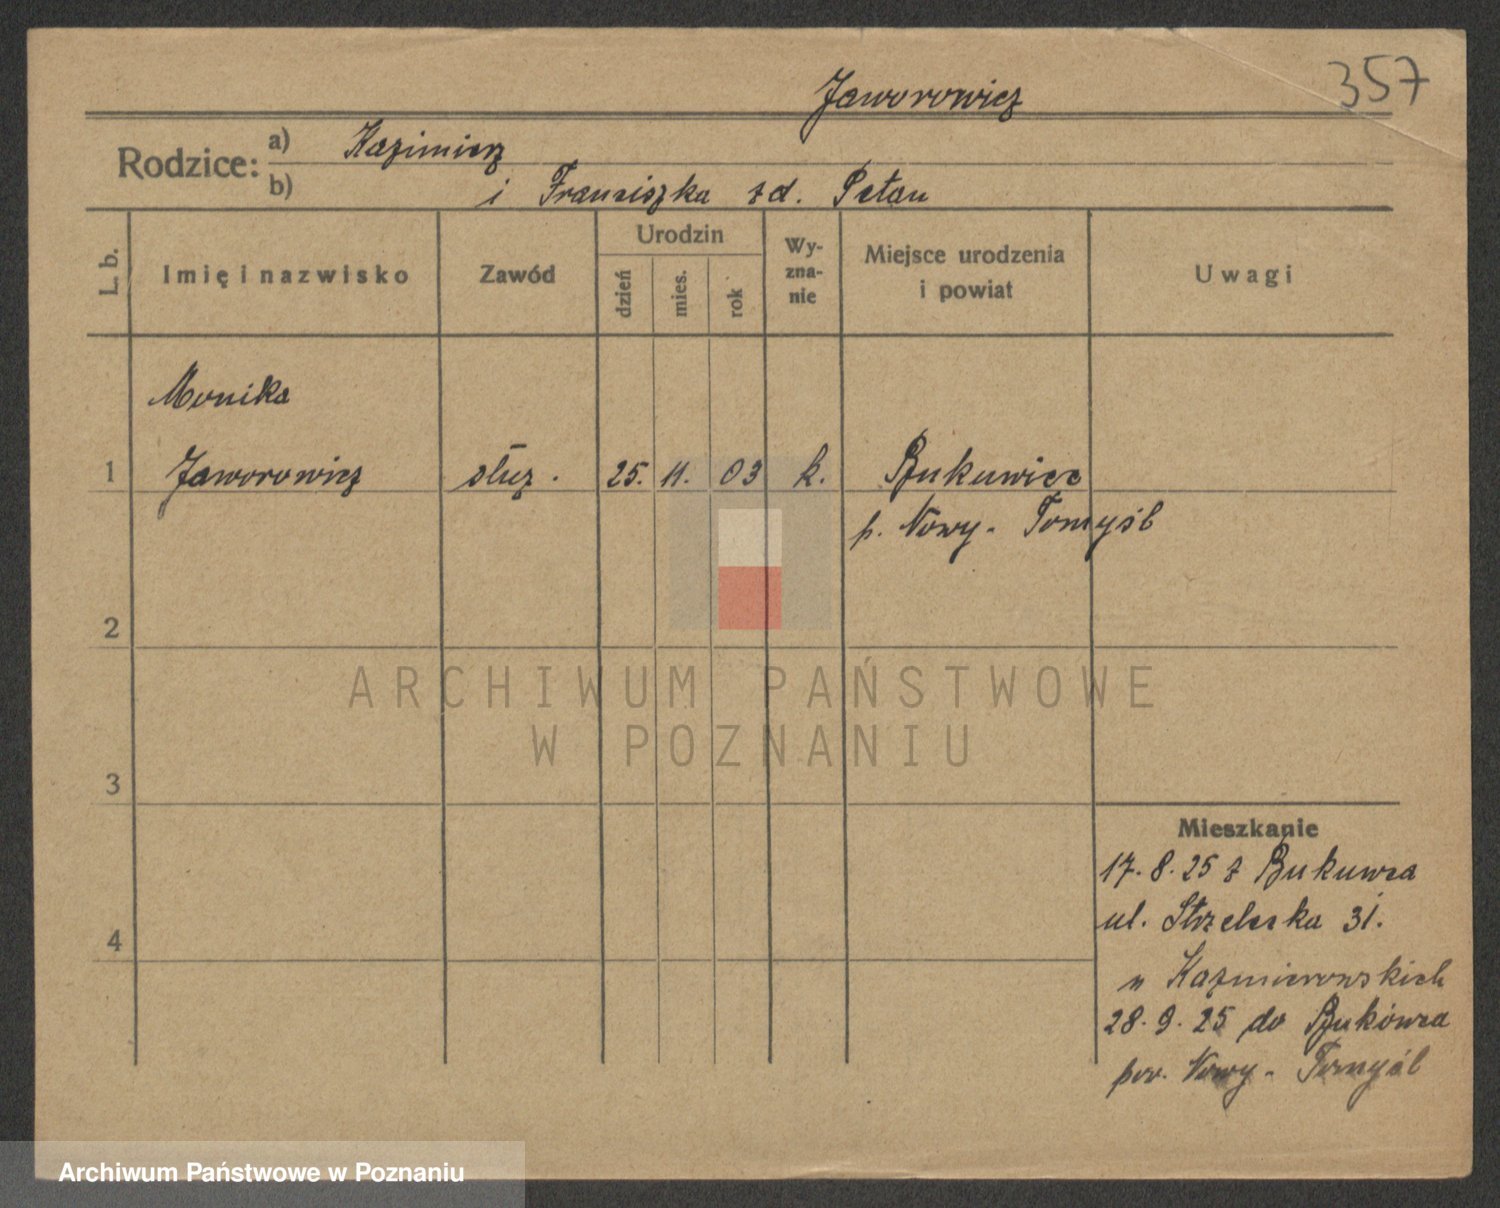 357
Jaworowicz
Rodzice: a) Kazimierz
b) i Franciszka zd. Petau
L. b.
Imię i nazwisko
Zawód
Urodzin
dzień
mies.
rok
Wy-
zna-
nie
Miejsce urodzenia
i powiat
Uwagi
Monika
1 Jaworowicz służ. 25. 11. 03 k. Bukuwiec
p. Nowy-Tomyśl
2
3
4
Mieszkanie
17.8.25 z Bukuwca
ul. Strzelecka 31.
u Kazmierowskich
28.9.25 do Bukówca
pow. Nowy-Tomyśl
ARCHIWUM PAŃSTWOWE
W POZNANIU
Archiwum Państwowe w Poznaniu